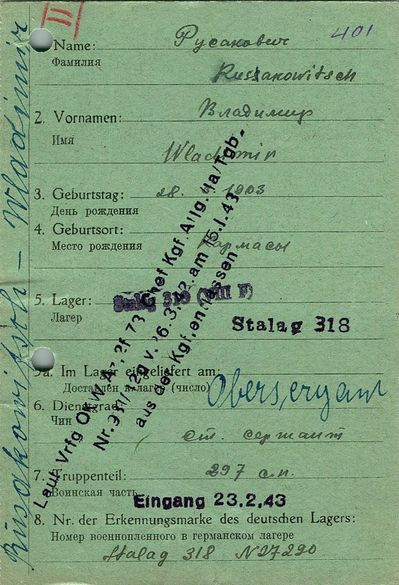 II
401
Name: Русакович
Фамилия
Russakowitsch
2. Vornamen: Владимир
Имя
Wladimir
3. Geburtstag: 28. 1903
День рождения
4. Geburtsort:
Место рождения
5. Lager: Stalag 319 (VIII F)
Лагер
Stalag 318
5a. Im Lager eingeliefert am:
Доставлен в лагер (число)
Oberseryant
6. Dienstgrad:
Чин
ст. сержант
7. Truppenteil: 297 с.п.
Воинская часть
Eingang 23.2.43
8. Nr. der Erkennungsmarke des deutschen Lagers:
Номер военнопленного в германском лагере
Stalag 318 N27290
Laut Vrfg OKW. Az. 2f 73 Chef Kgf. Allg. IIa/Tgb-
am 15.1.43
aus der Kgf. entlassen
Rusakowitsch – Wladimir